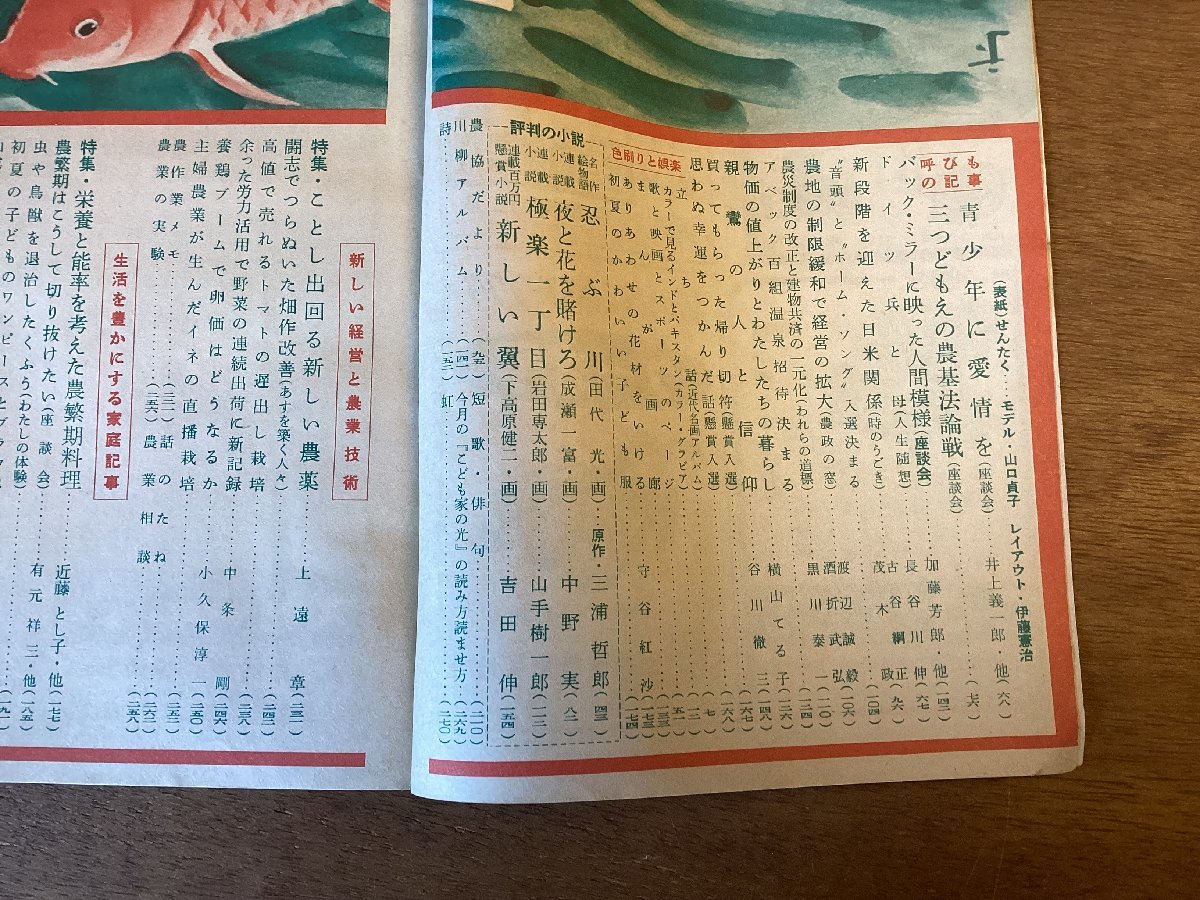 (表紙)せんたく…モデル・山口貞子 レイアウト・伊藤憲治
呼びもの記事
青少年に愛情を(座談会)……井上義一郎・他(六八)
三つどもえの農基法論戦(座談会)……(七六)
バック・ミラーに映った人間模様(座談会)……加藤芳郎・他(一四二)
ドイツ兵と母(人生随想)……長谷川伸(六七)
新段階を迎えた日米関係(時のうごき)……古谷綱正(九六)
"音頭"と"ホーム・ソング"入選決まる……茂木政(一〇四)
農地の制限緩和で経営の拡大(農政の窓)……渡辺誠毅(一〇六)
農災制度の改正と建物共済の一元化(われらの道標)……酒折武弘(一一〇)
アベック百組温泉招待決まる……黒川泰一(一二六)
物価の値上がりとわたしたちの暮らし……横山てる子(一四八)
親鸞の人と信仰……谷川徹三(一六七)
買ってもらった帰り切符(懸賞入選)……(一六八)
思わぬ幸運をつかんだ話(懸賞入選)
色刷りと娯楽
立ち話(近代名画アルバム)
カラーで見るインドとパキスタン(カラー・グラビア)
歌と映画とスポーツのページ
まんが画廊
ありあわせの花材をどういける……守谷紅沙(一七三)
初夏のかわいい子ども服……(一七四)
評判の小説
名作絵物語 忍ぶ川(田代光・画)原作・三浦哲郎(四三)
連載小説 夜と花を賭けろ(成瀬一富・画)……中野実(八二)
連載小説 極楽一丁目(岩田専太郎・画)……山手樹一郎(一一三)
連載百万円懸賞小説 新しい翼(下高原健二・画)……吉田伸(一五四)
農協だより……(至)短歌・俳句……(二一〇)
川柳アルバム……(一四一)今月の『こども家の光』の読み方読ませ方……(二六九)
詩……(一五三)虹……(一七〇)
新しい経営と農業技術
特集・ことし出回る新しい農薬……上遠章(二三一)
闘志でつらぬいた畑作改善(あすを築く人々)
高値で売れるトマトの遅出し栽培……(二四二)
余った労力活用で野菜の連続出荷に新記録……(二三八)
養鶏ブームで卵価はどうなるか……中条剛(二四六)
主婦農業が生んだイネの直播栽培……小久保淳一(二五〇)
農作業メモ……(二五二)
農業の実験……(三一一)話のたね……(二六二)
(二五六)農業相談……(二五八)
生活を豊かにする家庭記事
特集・栄養と能率を考えた農繁期料理……近藤とし子・他(一七七)
農繁期はこうして切り抜けたい(座談会)……有元祥三・他(一八五)
虫や鳥獣を退治したくふう(わたしの体験)
初夏の子どものワンピースと